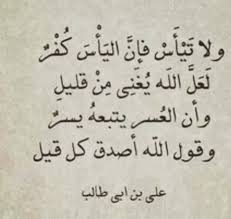 ولا تَيْأَسْ فإنَّ اليَأْسَ كُفْرٌ
لعَلَّ الله يُغْنِى مِنْ قليلِ
وأن العُسر يتبعهُ يسرٌ
وقول الله أصدق كل قيل
على بن ابى طالب